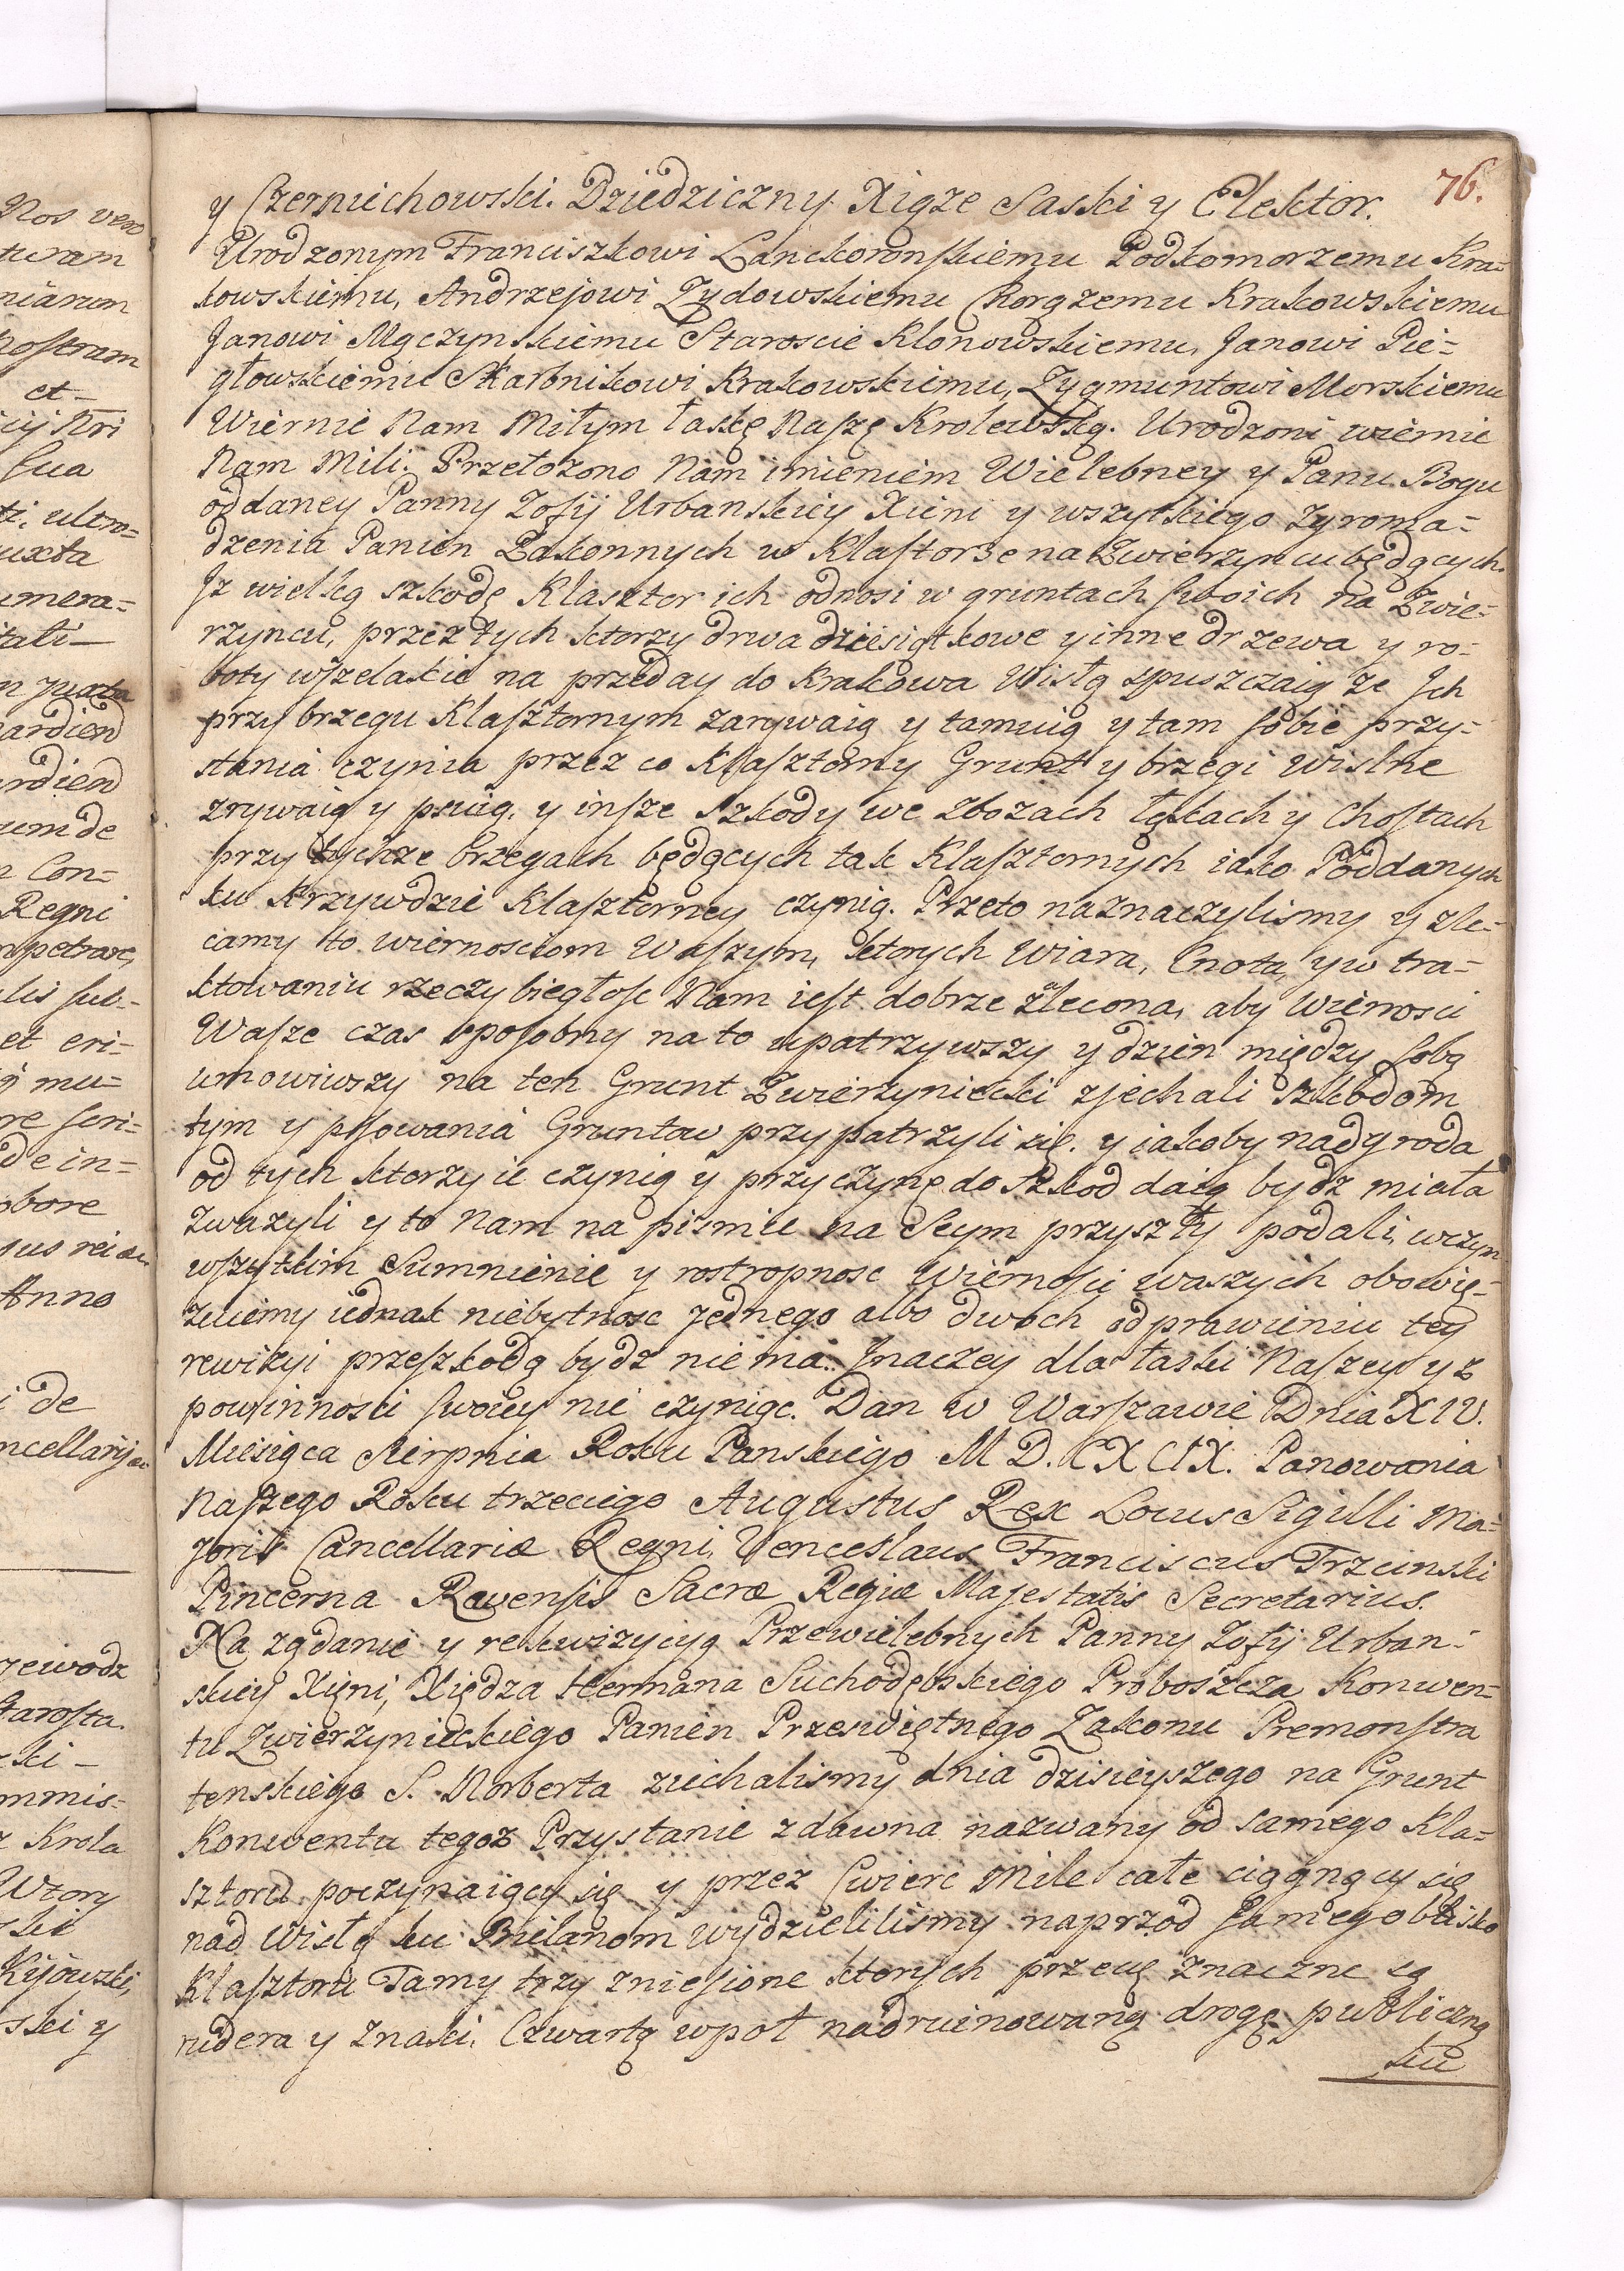 76.
y Czerniechowski. Dziedziczny Xiąze Saski y Elektor.
Urodzonym Franciszkowi Lanckoronskiemu Podkomorzemu Kra=
kowskiemu, Andrzejowi Zydowskiemu Chorązemu Krakowskiemu
Janowi Mączynskiemu Staroscie Klonowskiemu, Janowi Pie=
głowskiemu Skarbnikowi Krakowskiemu, Zygmuntowi Morskiemu
Wiernie Nam Miłym łaskę Naszę Krolewską. Urodzoni wiernie
Nam Mili. Przełozono Nam imieniem Wielebney y Panu Bogu
oddaney Panny Zofij Urbanskiey Xieni y wszytkiego zgroma=
dzenia Panien Zakonnych w Klasztorze na Zwierzyncu będących.
Jz wielką szkodę Klasztor ich odnosi w gruntach swoich na Zwie=
rzyncu, przez tych ktorzy drwa dziesiątkowe y inne drzewa y ro=
boty wszelakie na przeday do Krakowa Wisłą spuszczaią ze Jch
przy brzegu Klasztornym zarywaią y tamuią y tam sobie przy=
stania czynia przez co Klasztorny Grunt y brzegi wislne
zrywaią y psuią. y insze szkody we zbozach łąkach y Chostach
przy tychze brzegach będących tak Klasztornych iako Poddanych
ku krzywdzie Klasztorney czynią. Przeto naznaczylismy y zle=
camy to wiernosciom Waszym, ktorych Wiara, Cnota, y w tra=
ktowaniu rzeczy biegłosc Nam iest dobrze zlecona, aby Wiernosci
Wasze czas sposobny na to upatrzywszy y dzien między sobą
umowiwszy na ten Grunt Zwierzyniecki zjechali szkodom
tym y psowania Gruntow przypatrzyli się. y iakoby nadgroda
od tych ktorzy ie czynią y przyczynę do szkod daią bydz miała
Zwazyli y to Nam na pismie na Seym przyszły podali, w czym
wszytkim Sumnienie y rostropnosc Wiernosci waszych obowię=
zuiemy iednak niebytnosc jednego albo dwoch odprawieniu tey
rewizyi przeszkodą bydz nie ma. Jnaczey dla łaski Naszey y z
powinnosci swoiey nie czyniąc. Dan w Warszawie Dnia XIV.
Miesiąca Sierpnia Roku Panskiego M D. C X C I X. Panowania
Naszego Roku trzeciego Augustus Rex Locus Sigilli Ma=
joris Cancellariæ Regni, Venceslaus Franciscus Trzcinski
Pincerna Ravensis Sacræ Regiæ Majestatis Secretarius.
Na ządanie y rekwizycyą Przewielebnych Panny Zofij Urban=
skiey Xięni, Xiędza Hermana Suchodębskiego Proboszcza Konwen=
tu Zwierzynieckiego Panien Przeswiętnego Zakonu Premonstra
tenskiego S. Norberta ziechalismy dnia dzisieyszego na Grunt
Konwentu tegoz Przystanie zdawna nazwany od samego Kla=
sztoru poczynaiący się y przez Cwierc Mile całe ciągnący się
nad Wisłą ku Bielanom wydzielilismy naprzod samego blisko
Klasztoru Tamy trzy zniesione ktorych przecię znaczne są
rudera y znaki. Czwartą wpoł nadruinowaną drogę publiczną
ku